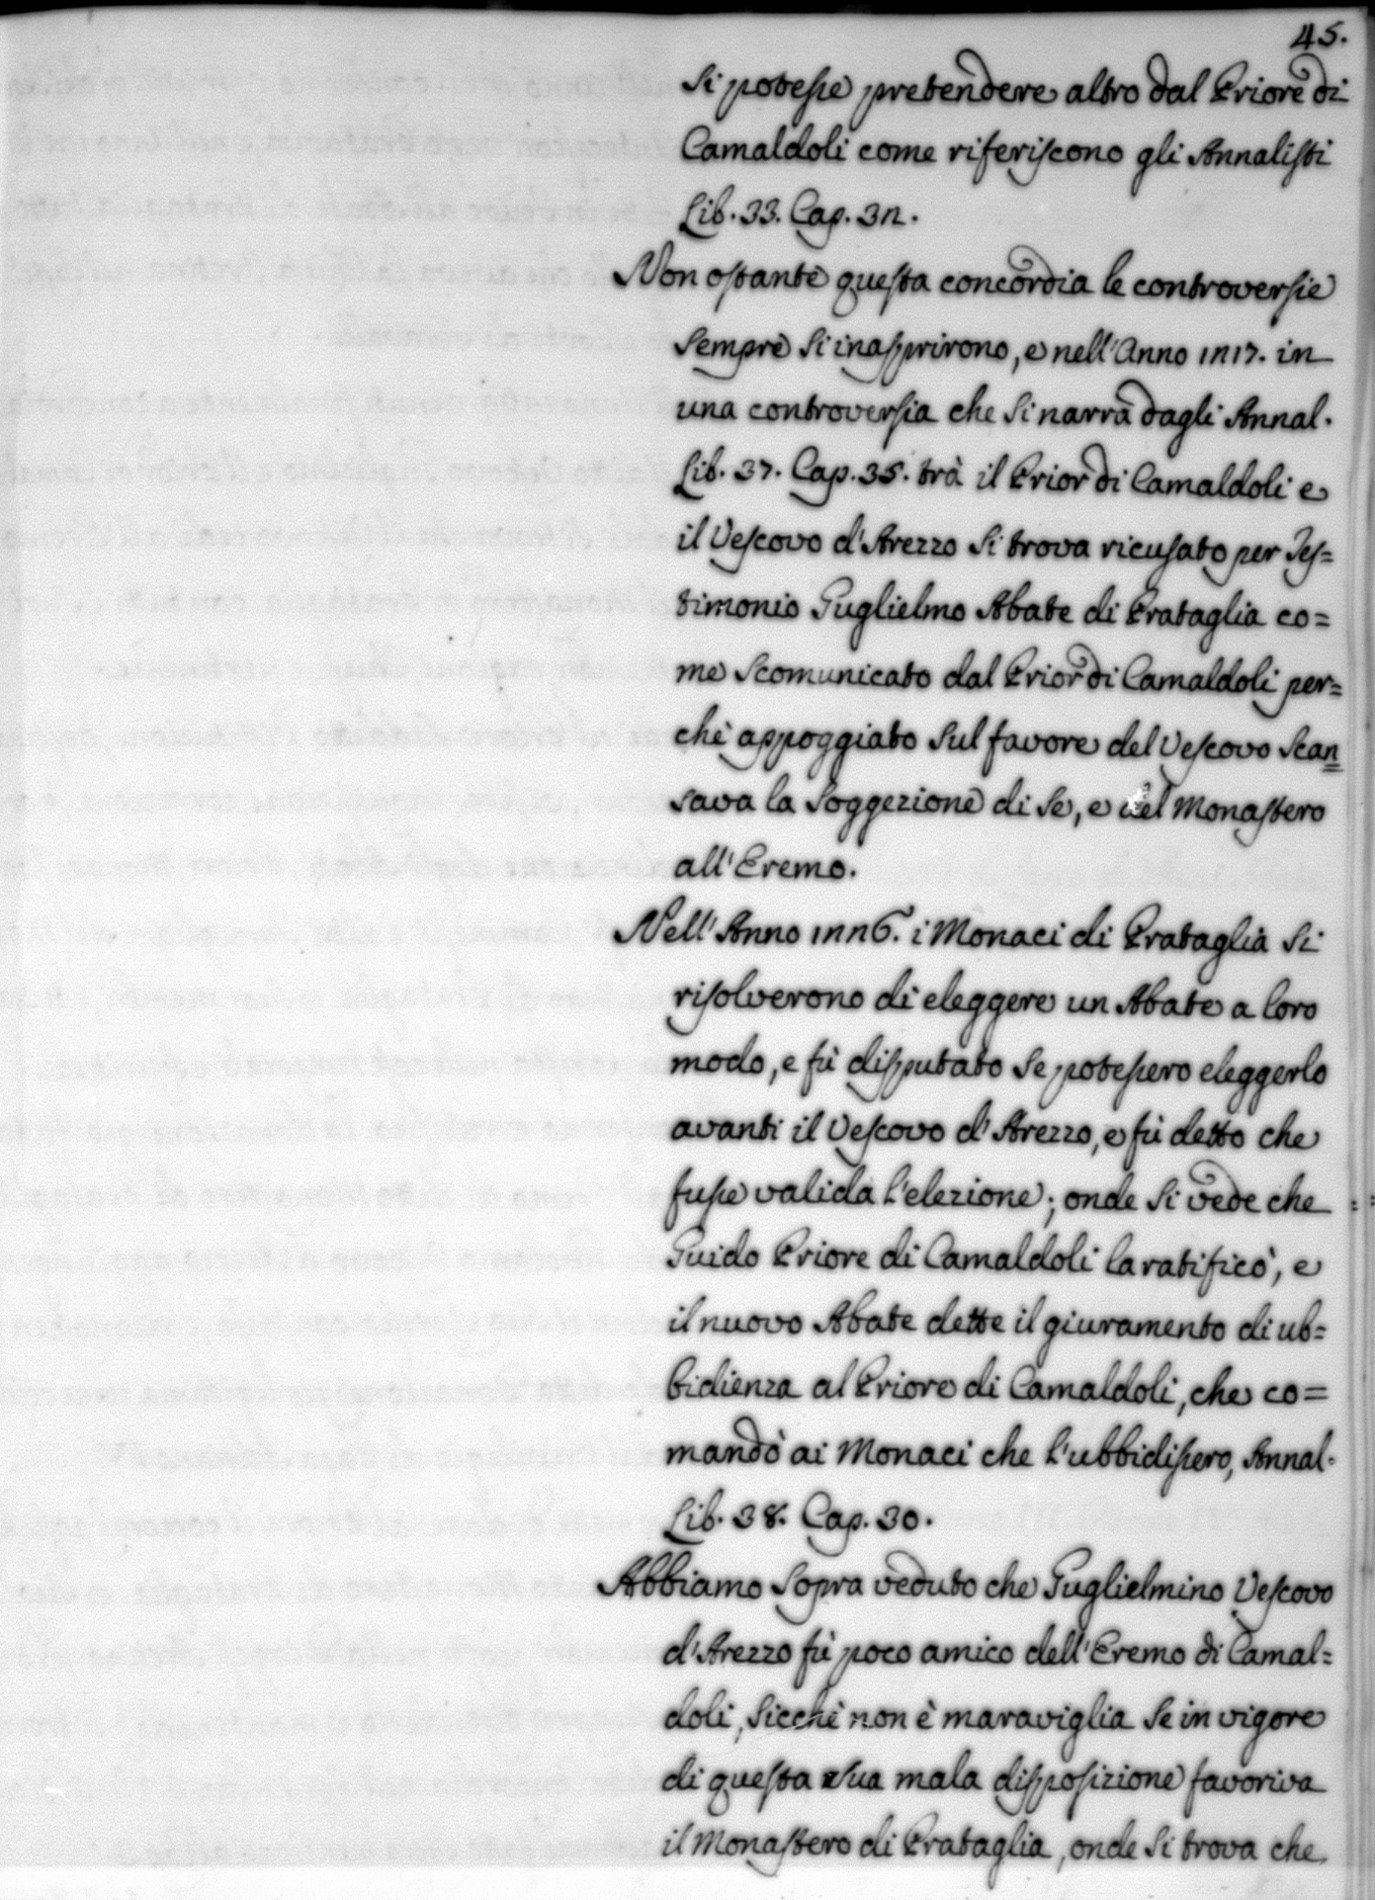 45.
si potesse pretendere altro dal Priore di
Camaldoli come riferiscono gli Annalisti
Lib. 33. Cap. 32.
Non ostante questa concordia le controversie
sempre si inasprirono, e nell'Anno 1217. in
una controversia che si narra dagli Annal.
Lib. 37. Cap. 35. trà il Prior di Camaldoli e
il Vescovo d'Arezzo si trova ricusato per Tes=
timonio Guglielmo Abate di Prataglia co=
me scomunicato dal Prior di Camaldoli per=
chè appoggiato sul favore del Vescovo scan=
sava la soggezione di se, e del Monastero
all'Eremo.
Nell'Anno 1226. i Monaci di Prataglia si
risolverono di eleggere un Abate a loro
modo, e fù disputato se potessero eleggerlo
avanti il Vescovo d'Arezzo, e fù detto che
fusse valida l'elezione; onde si vede che
Guido Priore di Camaldoli la ratificò, e
il nuovo Abate dette il giuramento di ub=
bidienza al Priore di Camaldoli, che co=
mandò ai Monaci che l'ubbidissero, Annal.
Lib. 38. Cap. 30.
Abbiamo sopra veduto che Guglielmino Vescovo
d'Arezzo fù poco amico dell'Eremo di Camal=
doli, sicchè non è maraviglia se in vigore
di questa sua mala disposizione favoriva
il Monastero di Prataglia, onde si trova che